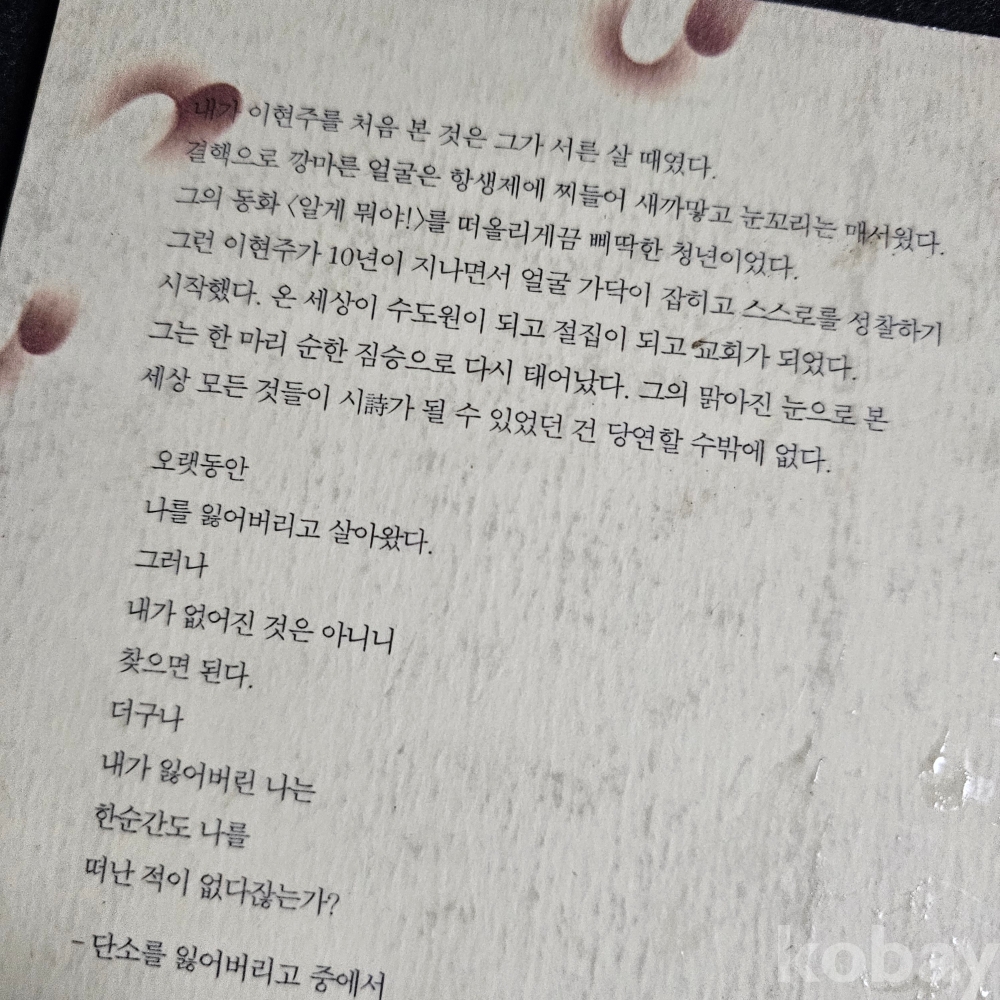 내가 이현주를 처음 본 것은 그가 서른 살 때였다.
결핵으로 깡마른 얼굴은 항생제에 찌들어 새까맣고 눈꼬리는 매서웠다.
그의 동화 〈알게 뭐야!〉를 떠올리게끔 삐딱한 청년이었다.
그런 이현주가 10년이 지나면서 얼굴 가닥이 잡히고 스스로를 성찰하기
시작했다. 온 세상이 수도원이 되고 절집이 되고 교회가 되었다.
그는 한 마리 순한 짐승으로 다시 태어났다. 그의 맑아진 눈으로 본
세상 모든 것들이 시詩가 될 수 있었던 건 당연할 수밖에 없다.
오랫동안
나를 잃어버리고 살아왔다.
그러나
내가 없어진 것은 아니니
찾으면 된다.
더구나
내가 잃어버린 나는
한순간도 나를
떠난 적이 없다잖는가?
- 단소를 잃어버리고 중에서
kobay